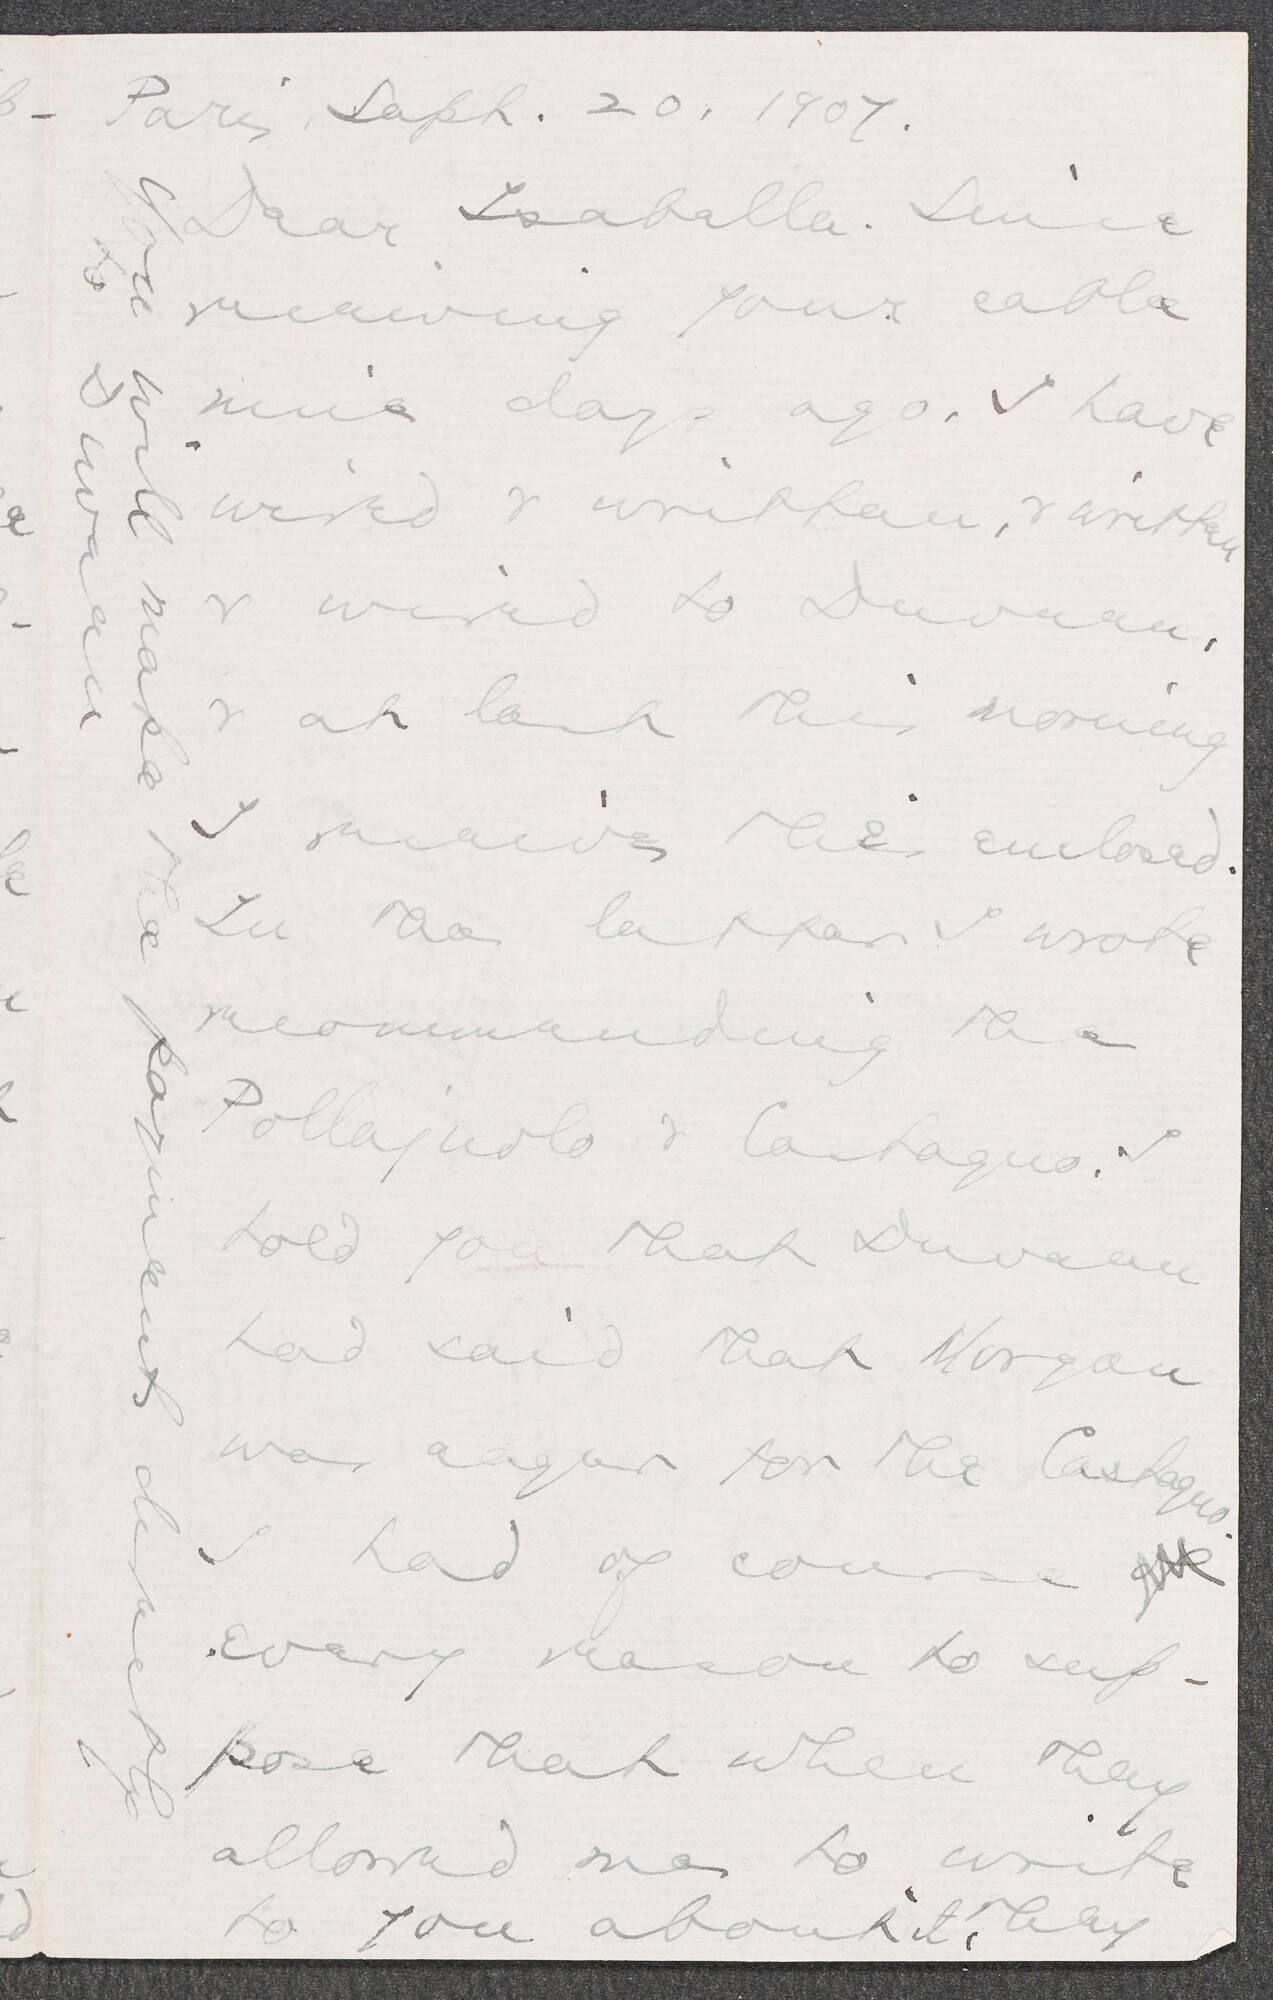 Paris, Sept. 20, 1907.
Dear Isabella. Since
receiving your cable
nine days ago, I have
wired & written, & written
& wired to Duveen,
& at last this morning
I receive the enclosed.
In the letter I wrote
recommending the
Pollajuolo & Castagno, I
told you that Duveen
had said that Morgan
was eager for the Castagno.
I had of course
every reason to sup-
pose that when they
allowed me to write
to you about it, they
You will make the payments directly
to Duveen